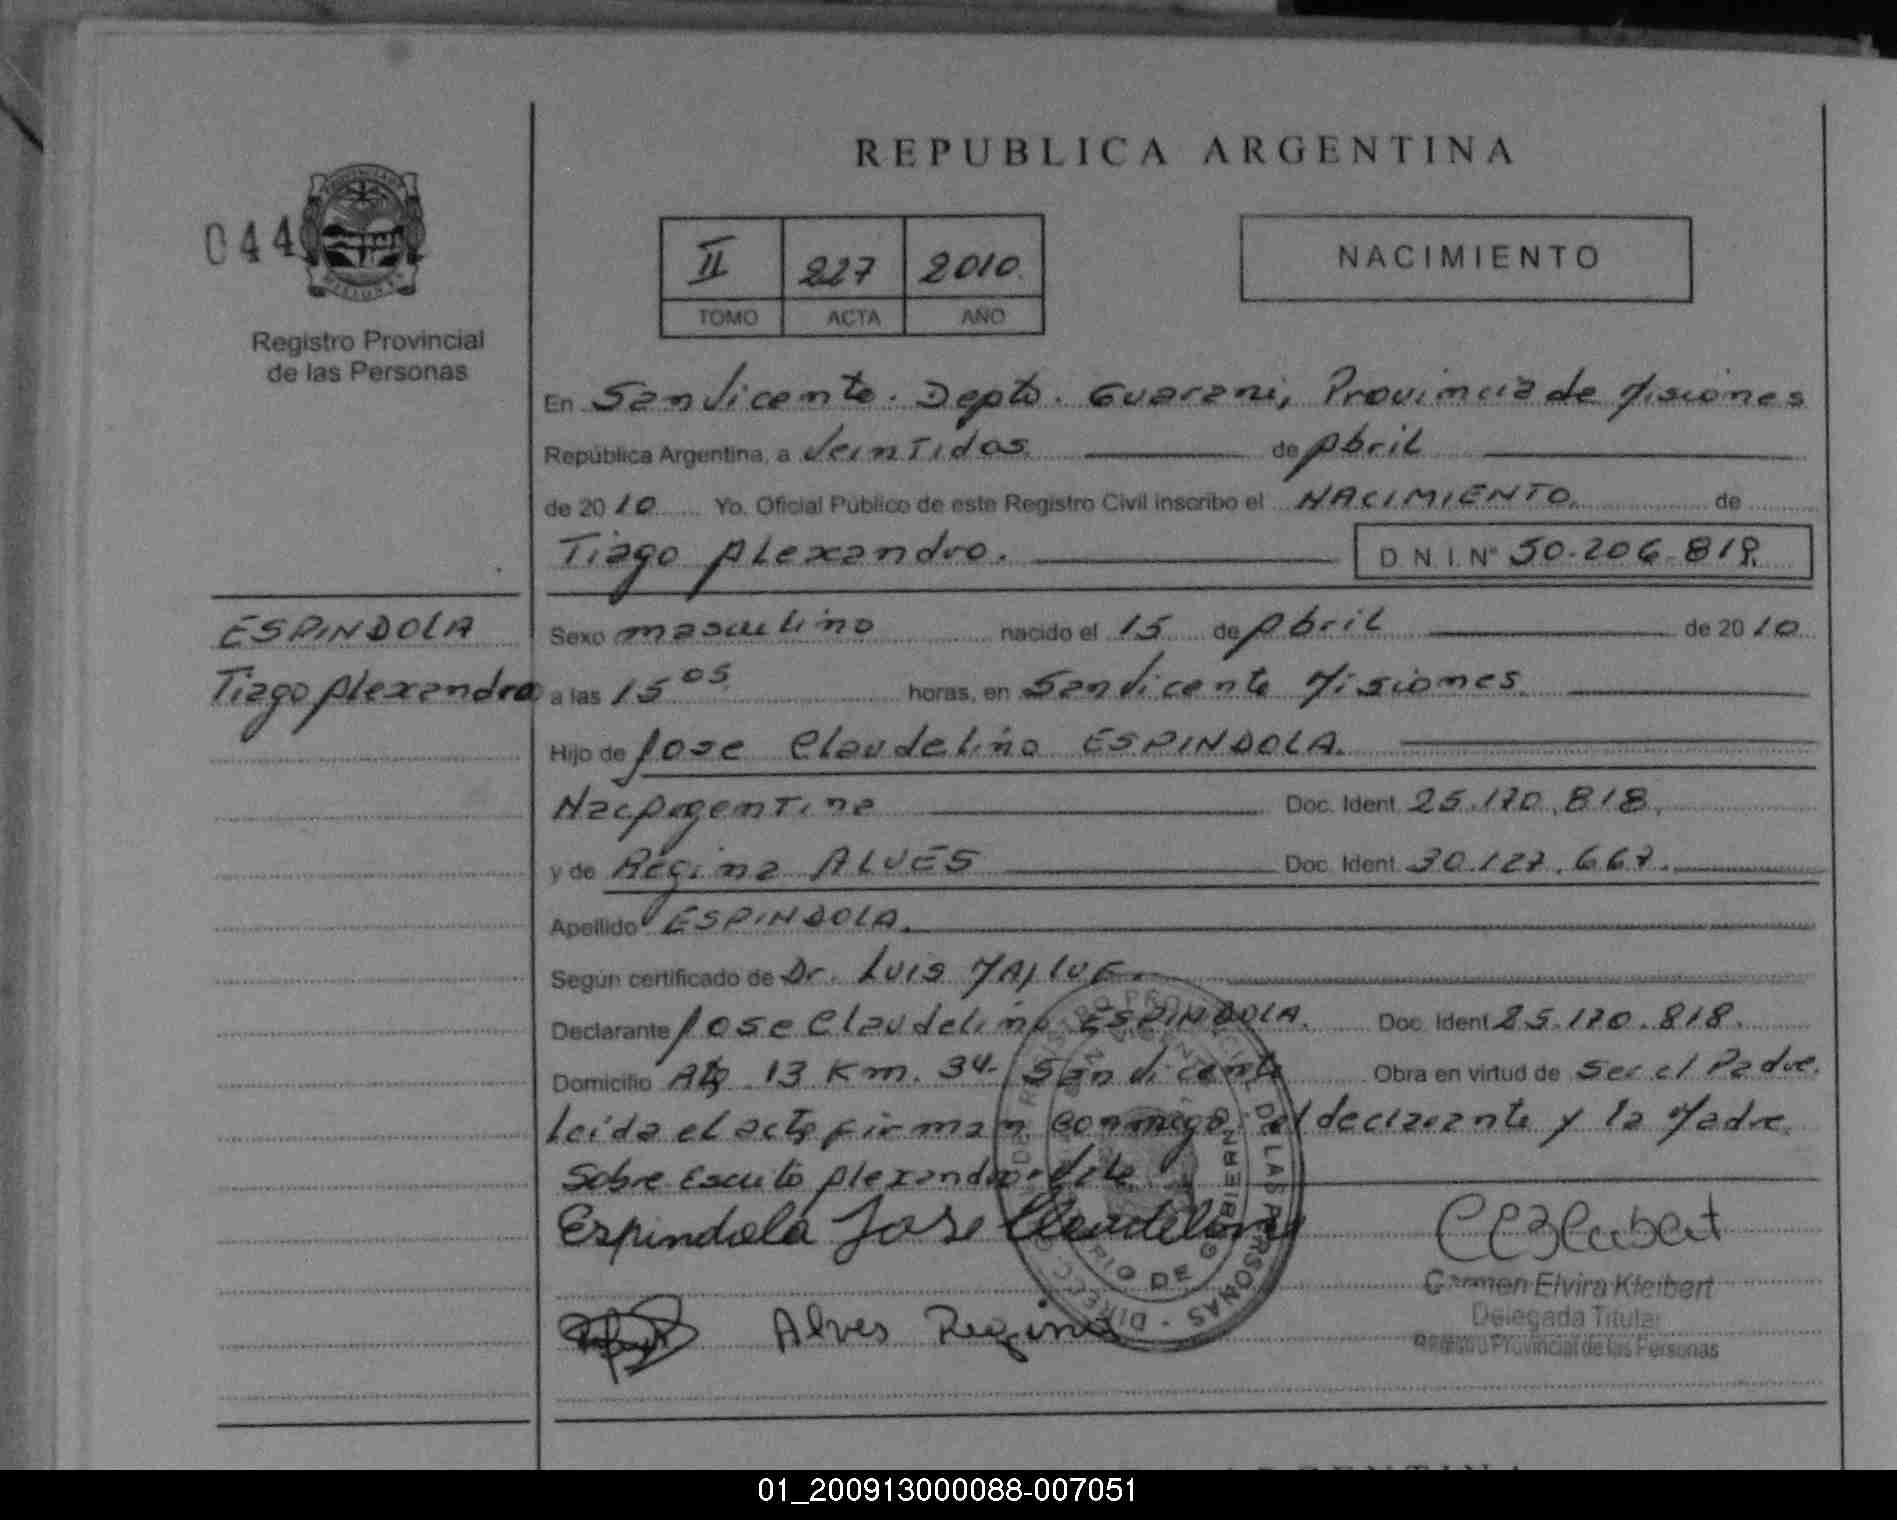 REPUBLICA ARGENTINA
044
Registro Provincial
de las Personas
II 227 2010
TOMO ACTA AÑO
NACIMIENTO
En San Vicente. Depto. Guarani, Provincia de Misiones
República Argentina, a Veintidos de Abril
de 2010 Yo. Oficial Público de este Registro Civil inscribo el NACIMIENTO. de
Tiago Alexandro. D.N.I.Nº 50.206.819.
ESPINDOLA
Tiago Alexandro
Sexo masculino nacido el 15 de Abril de 2010
a las 15 05 horas, en San Vicente Misiones.
Hijo de Jose Claudelino ESPINDOLA.
Nac Argentina Doc. Ident. 25.170.818.
y de Regina ALVES Doc. Ident. 30.127.667.
Apellido ESPINDOLA.
Según certificado de Dr. Luis
Declarante Jose Claudelino ESPINDOLA. Doc. Ident 25.170.818.
Domicilio 13 Km. 34. San Vicente Obra en virtud de Ser el Padre.
Leida el acta firman conmigo, el declarante y la Madre.
Sobre Escrito Alexandro. Vale
Espindola Jose Claudelino
Alves Regina
Carmen Elvira Kleibert
Delegada Titular
Registro Provincial de las Personas
01_200913000088-007051